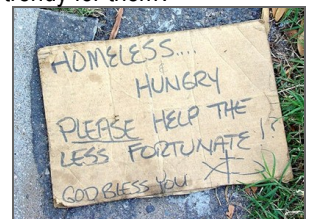 HOMELESS....
HUNGRY
PLEASE HELP THE
LESS FORTUNATE !?
GOD BLESS YOU